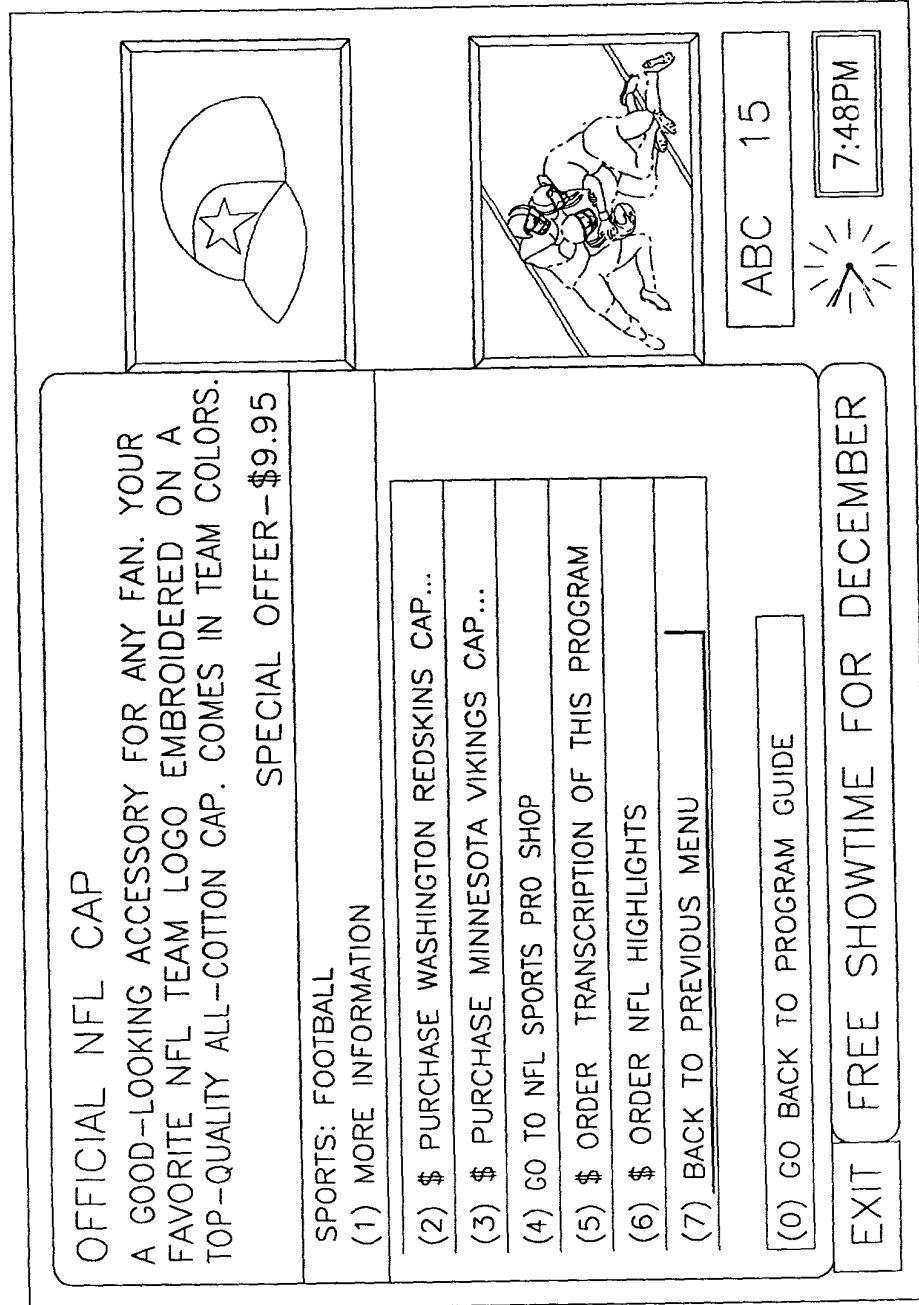 OFFICIAL NFL CAP
A GOOD-LOOKING ACCESSORY FOR ANY FAN. YOUR
FAVORITE NFL TEAM LOGO EMBROIDERED ON A
TOP-QUALITY ALL-COTTON CAP. COMES IN TEAM COLORS.
SPECIAL OFFER-$9.95
SPORTS: FOOTBALL
(1) MORE INFORMATION
(2) $ PURCHASE WASHINGTON REDSKINS CAP...
(3) $ PURCHASE MINNESOTA VIKINGS CAP...
(4) GO TO NFL SPORTS PRO SHOP
(5) $ ORDER TRANSCRIPTION OF THIS PROGRAM
(6) $ ORDER NFL HIGHLIGHTS
(7) BACK TO PREVIOUS MENU
(0) GO BACK TO PROGRAM GUIDE
ABC 15
EXIT
FREE SHOWTIME FOR DECEMBER
7:48PM